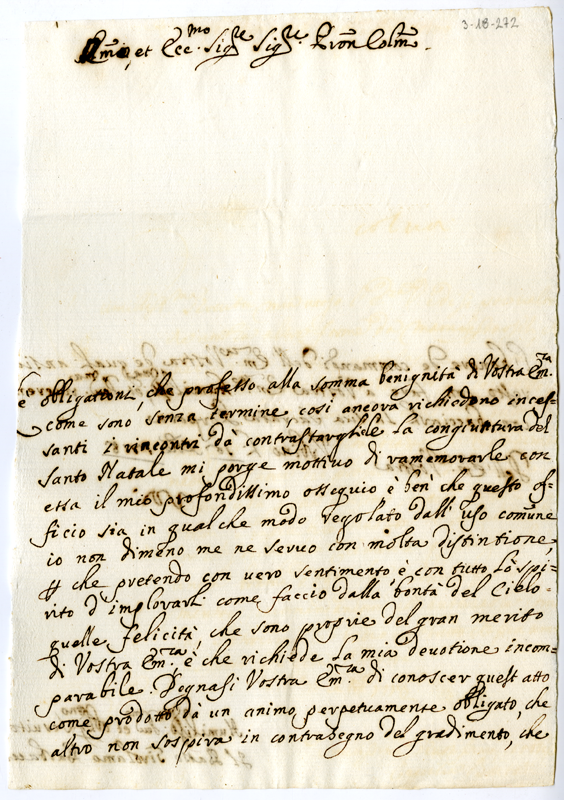 3-18-272
Em.o et Ecc.mo Sig.re Sig.re Pron Colmo.
Le obligationi, che professo alla somma benignità di Vostra Em.za
come sono senza termine, così ancora richiedono inces=
santi i riscontri dà contrastargliele. La congiuntura del
Santo Natale mi porge mottiuo di ramemorarle con
essa il mio profondissimo ossequio è ben che questo of=
ficio sia in qualche modo regolato dall'uso comune
io non dimeno me ne seruo con molta distintione,
che pretendo con uero sentimento, è con tutto lo spi=
rito d'implorarli come faccio dalla bontà del Cielo
quelle felicità, che sono proprie del gran merito
di Vostra Em.za è che richiede la mia deuotione incom=
parabile. Degnasi Vostra Em.za di conoscer quest atto
come prodotto dà un animo perpetuamente obligato, che
altro non sospira in contrasegno del gradimento, che